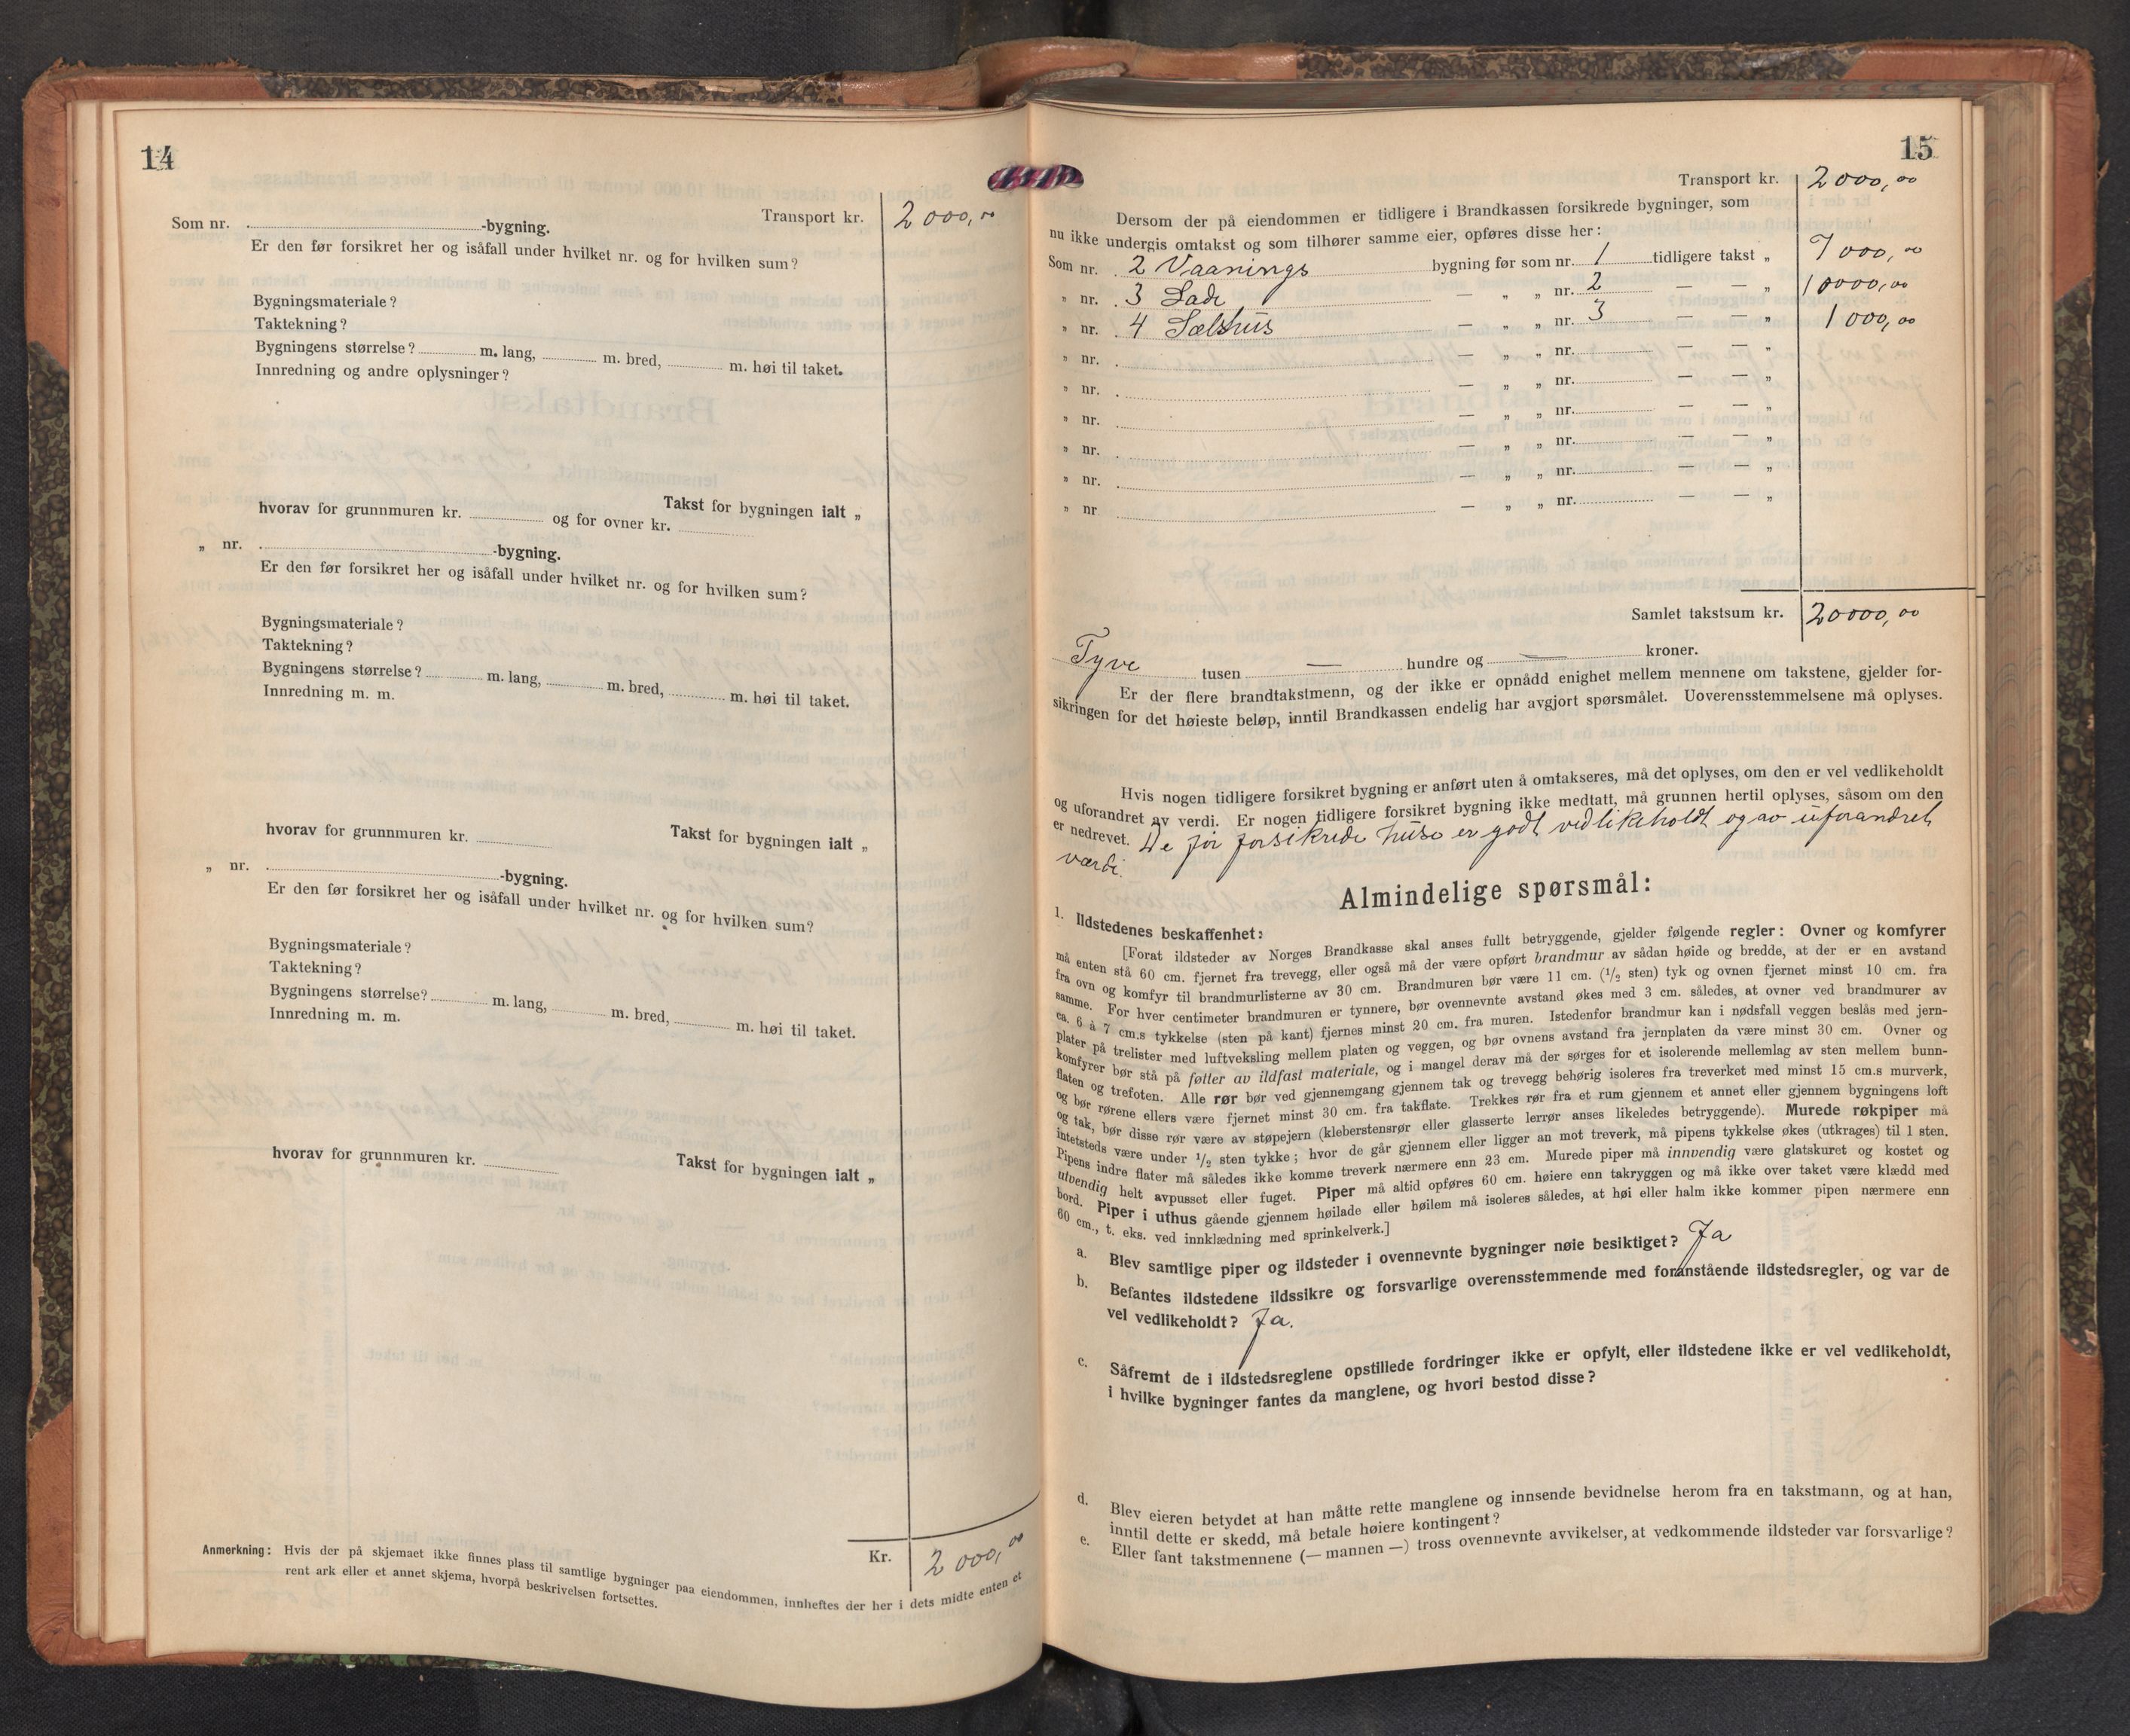 14
Transport kr. 2000,00
Som nr. -bygning.
Er den før forsikret her og isåfall under hvilket nr. og for hvilken sum?
Bygningsmateriale?
Taktekning?
Bygningens størrelse? m. lang, m. bred, m. høi til taket.
Innredning og andre oplysninger?
Takst for bygningen ialt „
hvorav for grunnmuren kr. og for ovner kr.
„ nr. -bygning.
Er den før forsikret her og isåfall under hvilket nr. og for hvilken sum?
Bygningsmateriale?
Taktekning?
Bygningens størrelse? m. lang, m. bred, m. høi til taket.
Innredning m. m.
hvorav for grunnmuren kr. Takst for bygningen ialt „
„ nr. -bygning.
Er den før forsikret her og isåfall under hvilket nr. og for hvilken sum?
Bygningsmateriale?
Taktekning?
Bygningens størrelse? m. lang, m. bred, m. høi til taket.
Innredning m. m.
hvorav for grunnmuren kr. Takst for bygningen ialt „
Kr. 2000,00
Anmerkning: Hvis der på skjemaet ikke finnes plass til samtlige bygninger paa eiendommen, innheftes der her i dets midte enten et
rent ark eller et annet skjema, hvorpå beskrivelsen fortsettes.
15
Transport kr. 2000,00
Dersom der på eiendommen er tidligere i Brandkassen forsikrede bygninger, som
nu ikke undergis omtakst og som tilhører samme eier, opføres disse her:
Som nr. 2 Vaanings bygning før som nr. 1 tidligere takst „ 7000,00
„ nr. 3 Lade — „ „ nr. 2 — — „ 10000,00
„ nr. 4 Sælshus — „ „ nr. 3 — — „ 1000,00
„ nr. — „ „ nr. — — „
„ nr. — „ „ nr. — — „
„ nr. — „ „ nr. — — „
„ nr. — „ „ nr. — — „
„ nr. — „ „ nr. — — „
„ nr — „ „ nr. — — „
Samlet takstsum kr. 20000,00
Tyve tusen — hundre og — kroner.
Er der flere brandtakstmenn, og der ikke er opnådd enighet mellem mennene om takstene, gjelder for-
sikringen for det høieste beløp, inntil Brandkassen endelig har avgjort spørsmålet. Uoverensstemmelsene må oplyses.
Hvis nogen tidligere forsikret bygning er anført uten å omtakseres, må det oplyses, om den er vel vedlikeholdt
og uforandret av verdi. Er nogen tidligere forsikret bygning ikke medtatt, må grunnen hertil oplyses, såsom om den
er nedrevet. De før forsikrede huse er godt vedlikeholdt og av uforandret
værdi.
Almindelige spørsmål:
1. Ildstedenes beskaffenhet:
[Forat ildsteder av Norges Brandkasse skal anses fullt betryggende, gjelder følgende regler: Ovner og komfyrer
må enten stå 60 cm. fjernet fra trevegg, eller også må der være opført brandmur av sådan høide og bredde, at der er en avstand
fra ovn og komfyr til brandmurlisterne av 30 cm. Brandmuren bør være 11 cm. (1/2 sten) tyk og ovnen fjernet minst 10 cm. fra
samme. For hver centimeter brandmuren er tynnere, bør ovennevnte avstand økes med 3 cm. således, at ovner ved brandmurer av
ca. 6 à 7 cm.s tykkelse (sten på kant) fjernes minst 20 cm. fra muren. Istedenfor brandmur kan i nødsfall veggen beslås med jern-
plater på trelister med luftveksling mellem platen og veggen, og bør ovnens avstand fra jernplaten da være minst 30 cm. Ovner og
komfyrer bør stå på føtter av ildfast materiale, og i mangel derav må der sørges for et isolerende mellemlag av sten mellem bunn-
flaten og trefoten. Alle rør bør ved gjennemgang gjennem tak og trevegg behørig isoleres fra treverket med minst 15 cm.s murverk,
og bør rørene ellers være fjernet minst 30 cm. fra takflate. Trekkes rør fra et rum gjennem et annet eller gjennem bygningens loft
og tak, bør disse rør være av støpejern (kleberstensrør eller glasserte lerrør anses likeledes betryggende). Murede røkpiper må
intetsteds være under 1/2 sten tykke; hvor de går gjennem eller ligger an mot treverk, må pipens tykkelse økes (utkrages) til 1 sten.
Pipens indre flater må således ikke komme treverk nærmere enn 23 cm. Murede piper må innvendig være glatskuret og kostet og
utvendig helt avpusset eller fuget. Piper må altid opføres 60 cm. høiere enn takryggen og må ikke over taket være klædd med
bord. Piper i uthus gående gjennem høilade eller høilem må isoleres således, at høi eller halm ikke kommer pipen nærmere enn
60 cm., t. eks. ved innklædning med sprinkelverk.]
a. Blev samtlige piper og ildsteder i ovennevnte bygninger nøie besiktiget? Ja
b. Befantes ildstedene ildssikre og forsvarlige overensstemmende med foranstående ildstedsregler, og var de
vel vedlikeholdt? Ja.
c. Såfremt de i ildstedsreglene opstillede fordringer ikke er opfylt, eller ildstedene ikke er vel vedlikeholdt,
i hvilke bygninger fantes da manglene, og hvori bestod disse?
d. Blev eieren betydet at han måtte rette manglene og innsende bevidnelse herom fra en takstmann, og at han,
inntil dette er skedd, må betale høiere kontingent?
e. Eller fant takstmennene (— mannen —) tross ovennevnte avvikelser, at vedkommende ildsteder var forsvarlige?